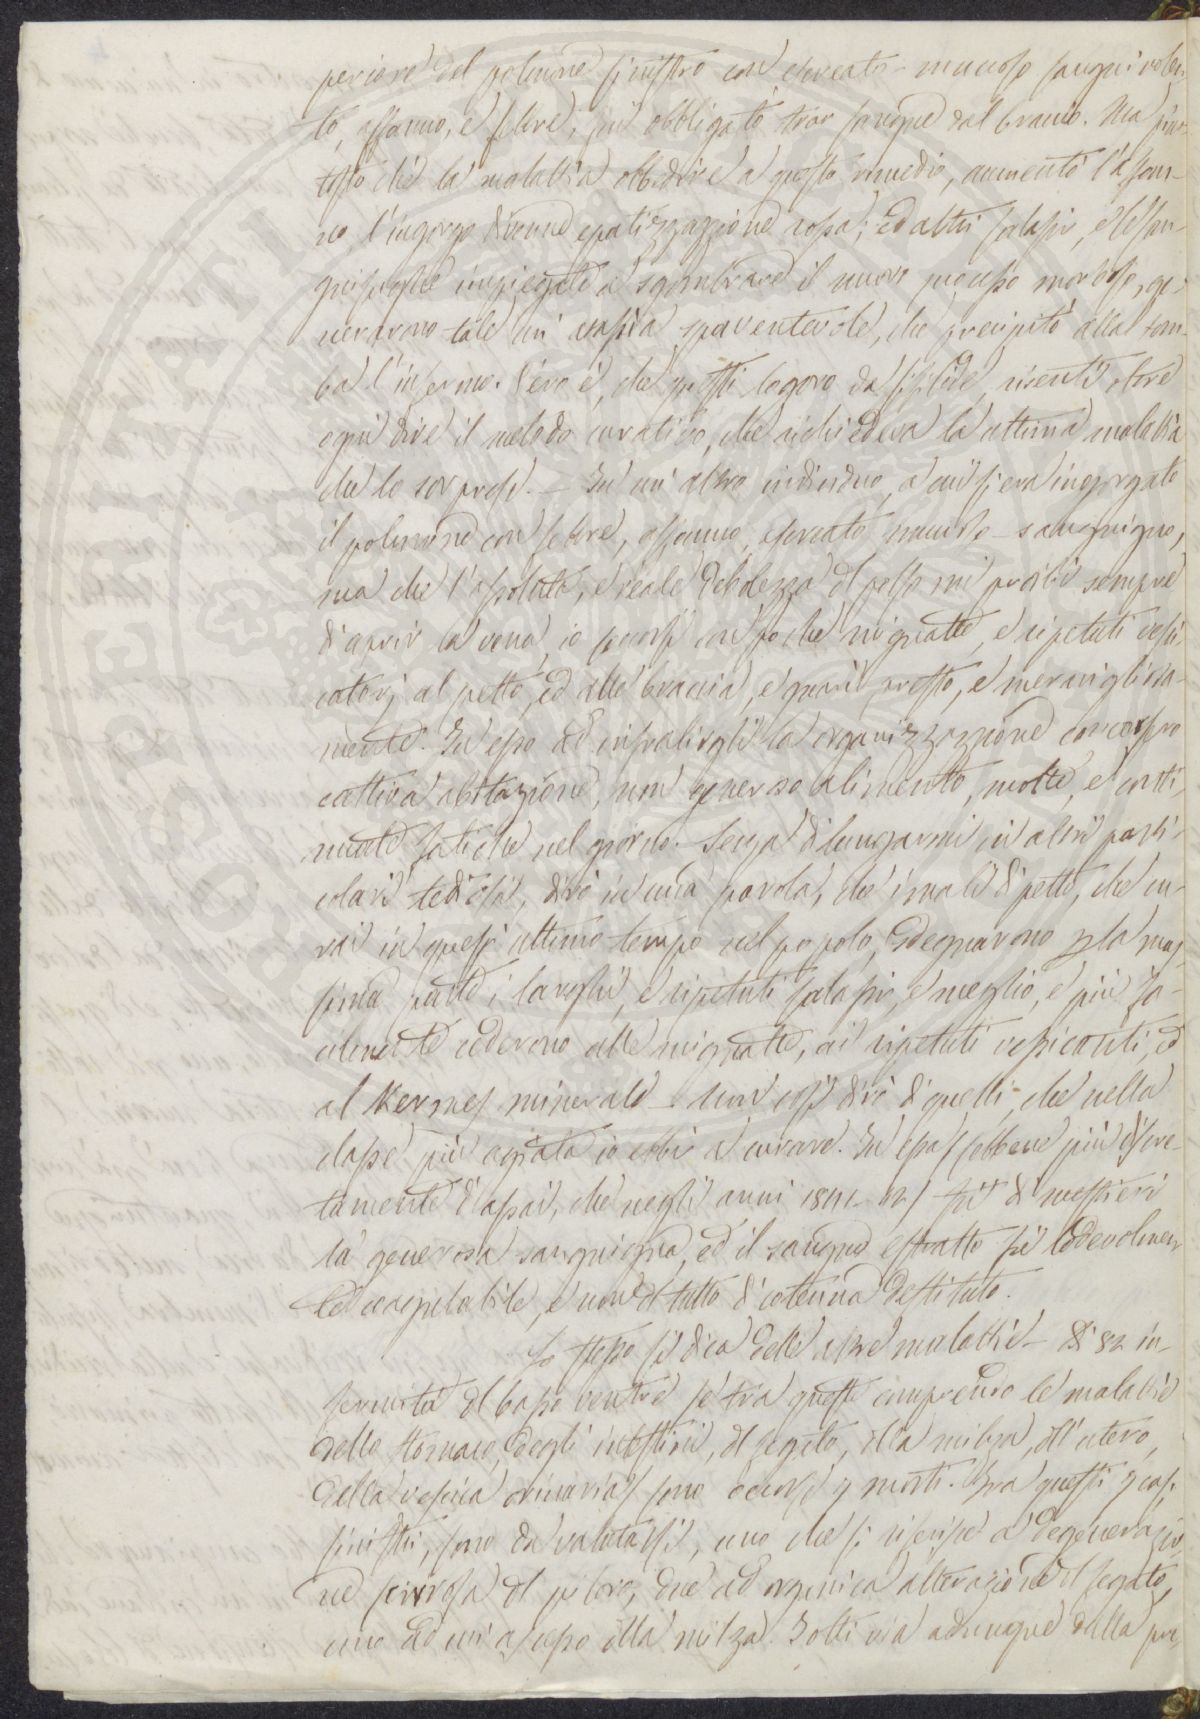 periore del polmone sinistro con escreato - mucoso sanguinolen-
to, affanno, e febre, fui obbligato trar sangue dal braccio. Ma piut-
tosto che la malattia obbedire a questo rimedio, aumentò l'affan-
no l'ingorgo divenne epatizzazione rossa; ed altri salassi, e le san-
guisughe impiegate a sgombrare il nuovo processo morboso, ge-
nerarono tale un' spaventevole, che precipitò alla tom-
ba l'infermo. Vero è, che questi logoro da sifilide, risentì oltre
ogni dire il metodo curativo, che richiedeva la ultima malattia
che lo sorprese. — In un altro individuo, a cui si era ingorgato
il polmone con febre, affanno, escreato mucoso - sanguigno,
ma che l'assoluta, e reale debolezza del polso mi proibì sempre
di aprir la vena, io soccorsi con poche mignatte, e ripetuti vessi-
catorj al petto, ed alle braccia, e guarì presto, e meravigliosa-
mente. In esso ad infralirgli la organizzazione concorsero
cattiva abitazione, non generoso alimento, molte, e conti-
nuate fatiche nel giorno. Senza dilungarmi in altri parti-
colari tediosi, dirò in una parola, che i mali di petto, che cu-
rai in quest' ultimo tempo nel popolo, sdegnarono p la mas-
sima parte i larghi, e ripetuti salassi, e meglio, e più fa-
cilmente cederono alle mignatte, ai ripetuti vessicanti, ed
al Kermes minerale — Non così dirò di quelli, che nella
classe più agiata io ebbi a curare. In essa (sebbene più discre-
tamente d'assai, che negli anni 1841-42) fu di mestieri
la generosa sanguigna, ed il sangue estratto fu lodevolmen-
te coagulabile, e non del tutto di cotenna destituto.
Lo stesso si dica delle altre malattie — Di 82 in-
fermità del basso ventre se tra queste comprendo le malattie
dello stomaco, degli intestini, del fegato, della milza, dell'utero,
della vescica orinaria) sono occorsi 7 morti. Fra questi 7 casi
sinistri, sono da valutarsi, uno che si riferisce a degenerazio-
ne scirrosa del piloro, due ad organica alterazione del fegato,
uno ad un ascesso della milza. Tolti via adunque dalla pre-